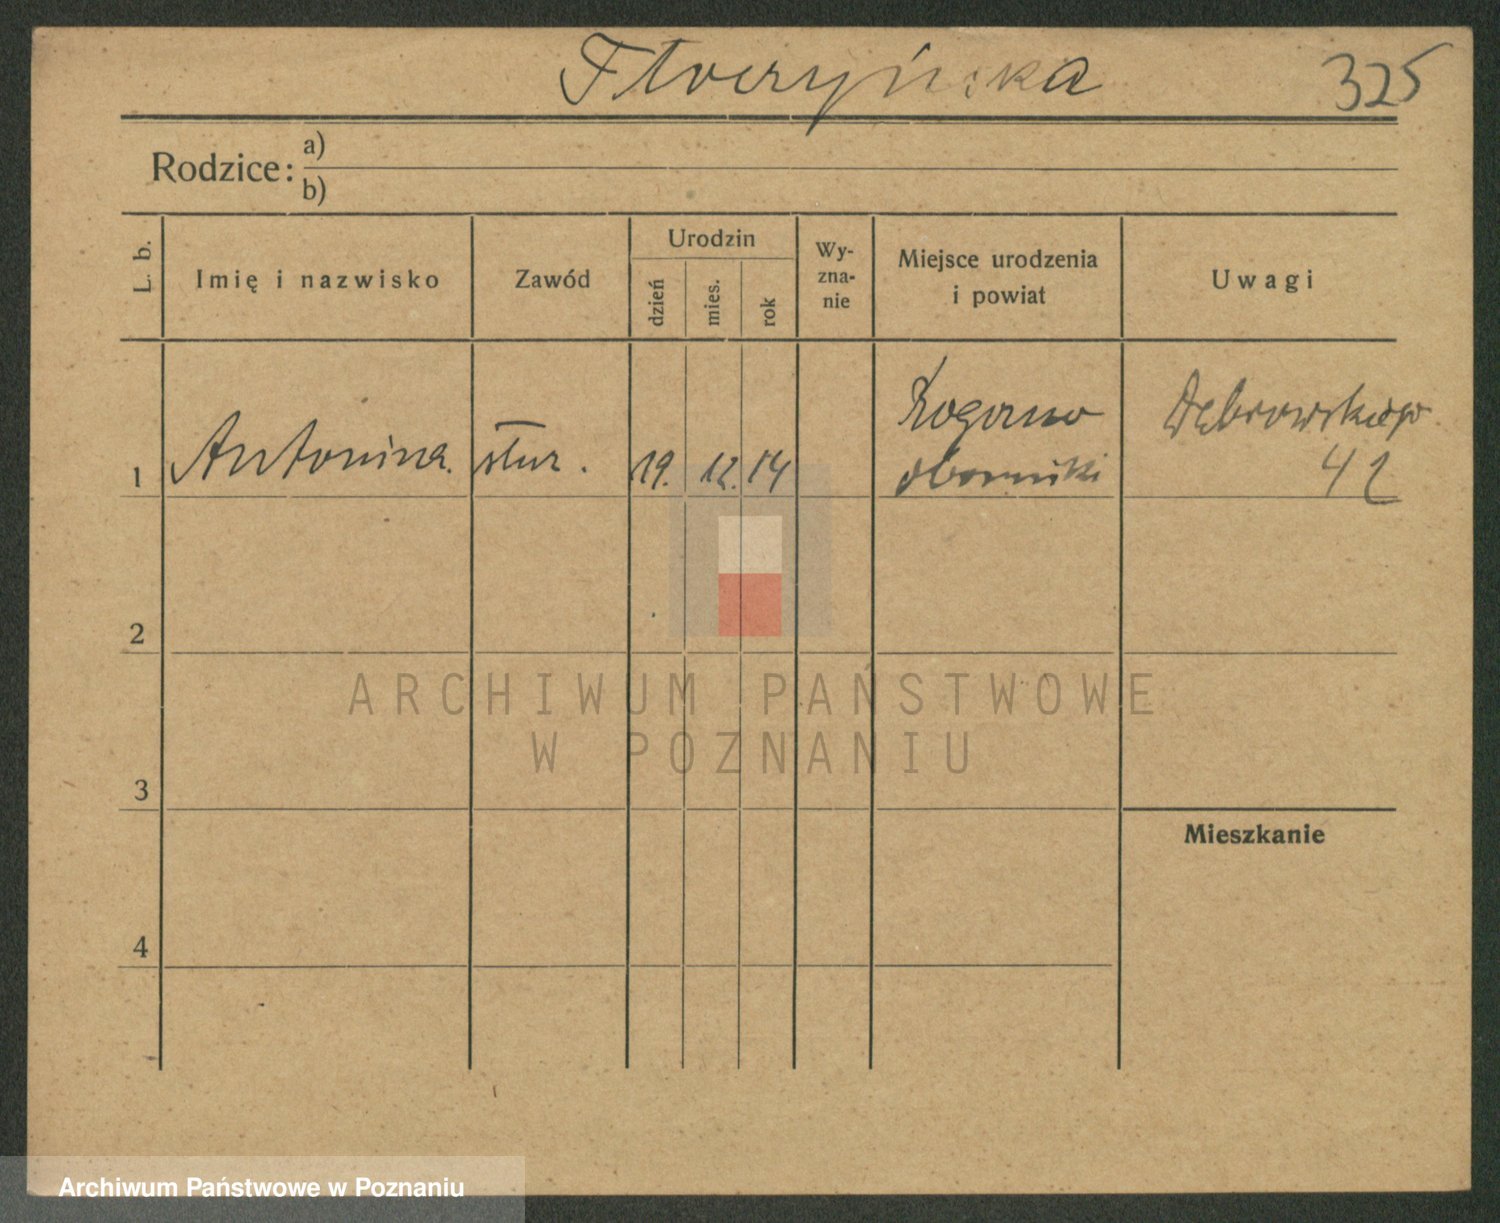 Floryńska
325
Rodzice:
a)
b)
L. b.
Imię i nazwisko
Zawód
Urodzin
dzień
mies.
rok
Wy-
zna-
nie
Miejsce urodzenia
i powiat
Uwagi
1
Antonina.
służ.
19.
12.
14
Rogoźno
Oborniki
Dąbrowskiego
42
2
3
4
Mieszkanie
ARCHIWUM PAŃSTWOWE
W POZNANIU
Archiwum Państwowe w Poznaniu